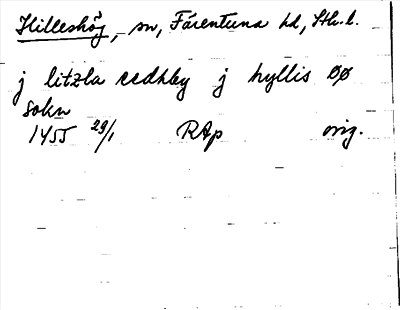 Hilleshög, sn, Färentuna hd, Sth. l.
j litzla eedhby j hyllis øø
sokn
1455 29/1 RAp orig.